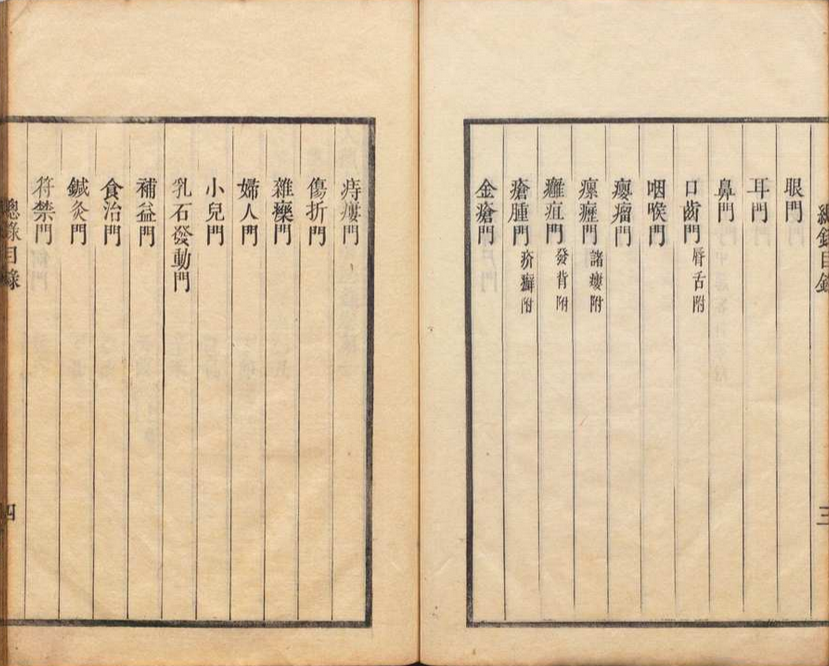 總錄目錄
三
眼門
耳門
鼻門
口齒門 脣舌附
咽喉門
癭瘤門
瘰癧門 諸瘻附
癰疽門 發背附
瘡腫門 疥癬附
金瘡門
痔瘻門
傷折門
雜療門
婦人門
小兒門
乳石發動門
補益門
食治門
鍼灸門
符禁門
總錄目錄
四